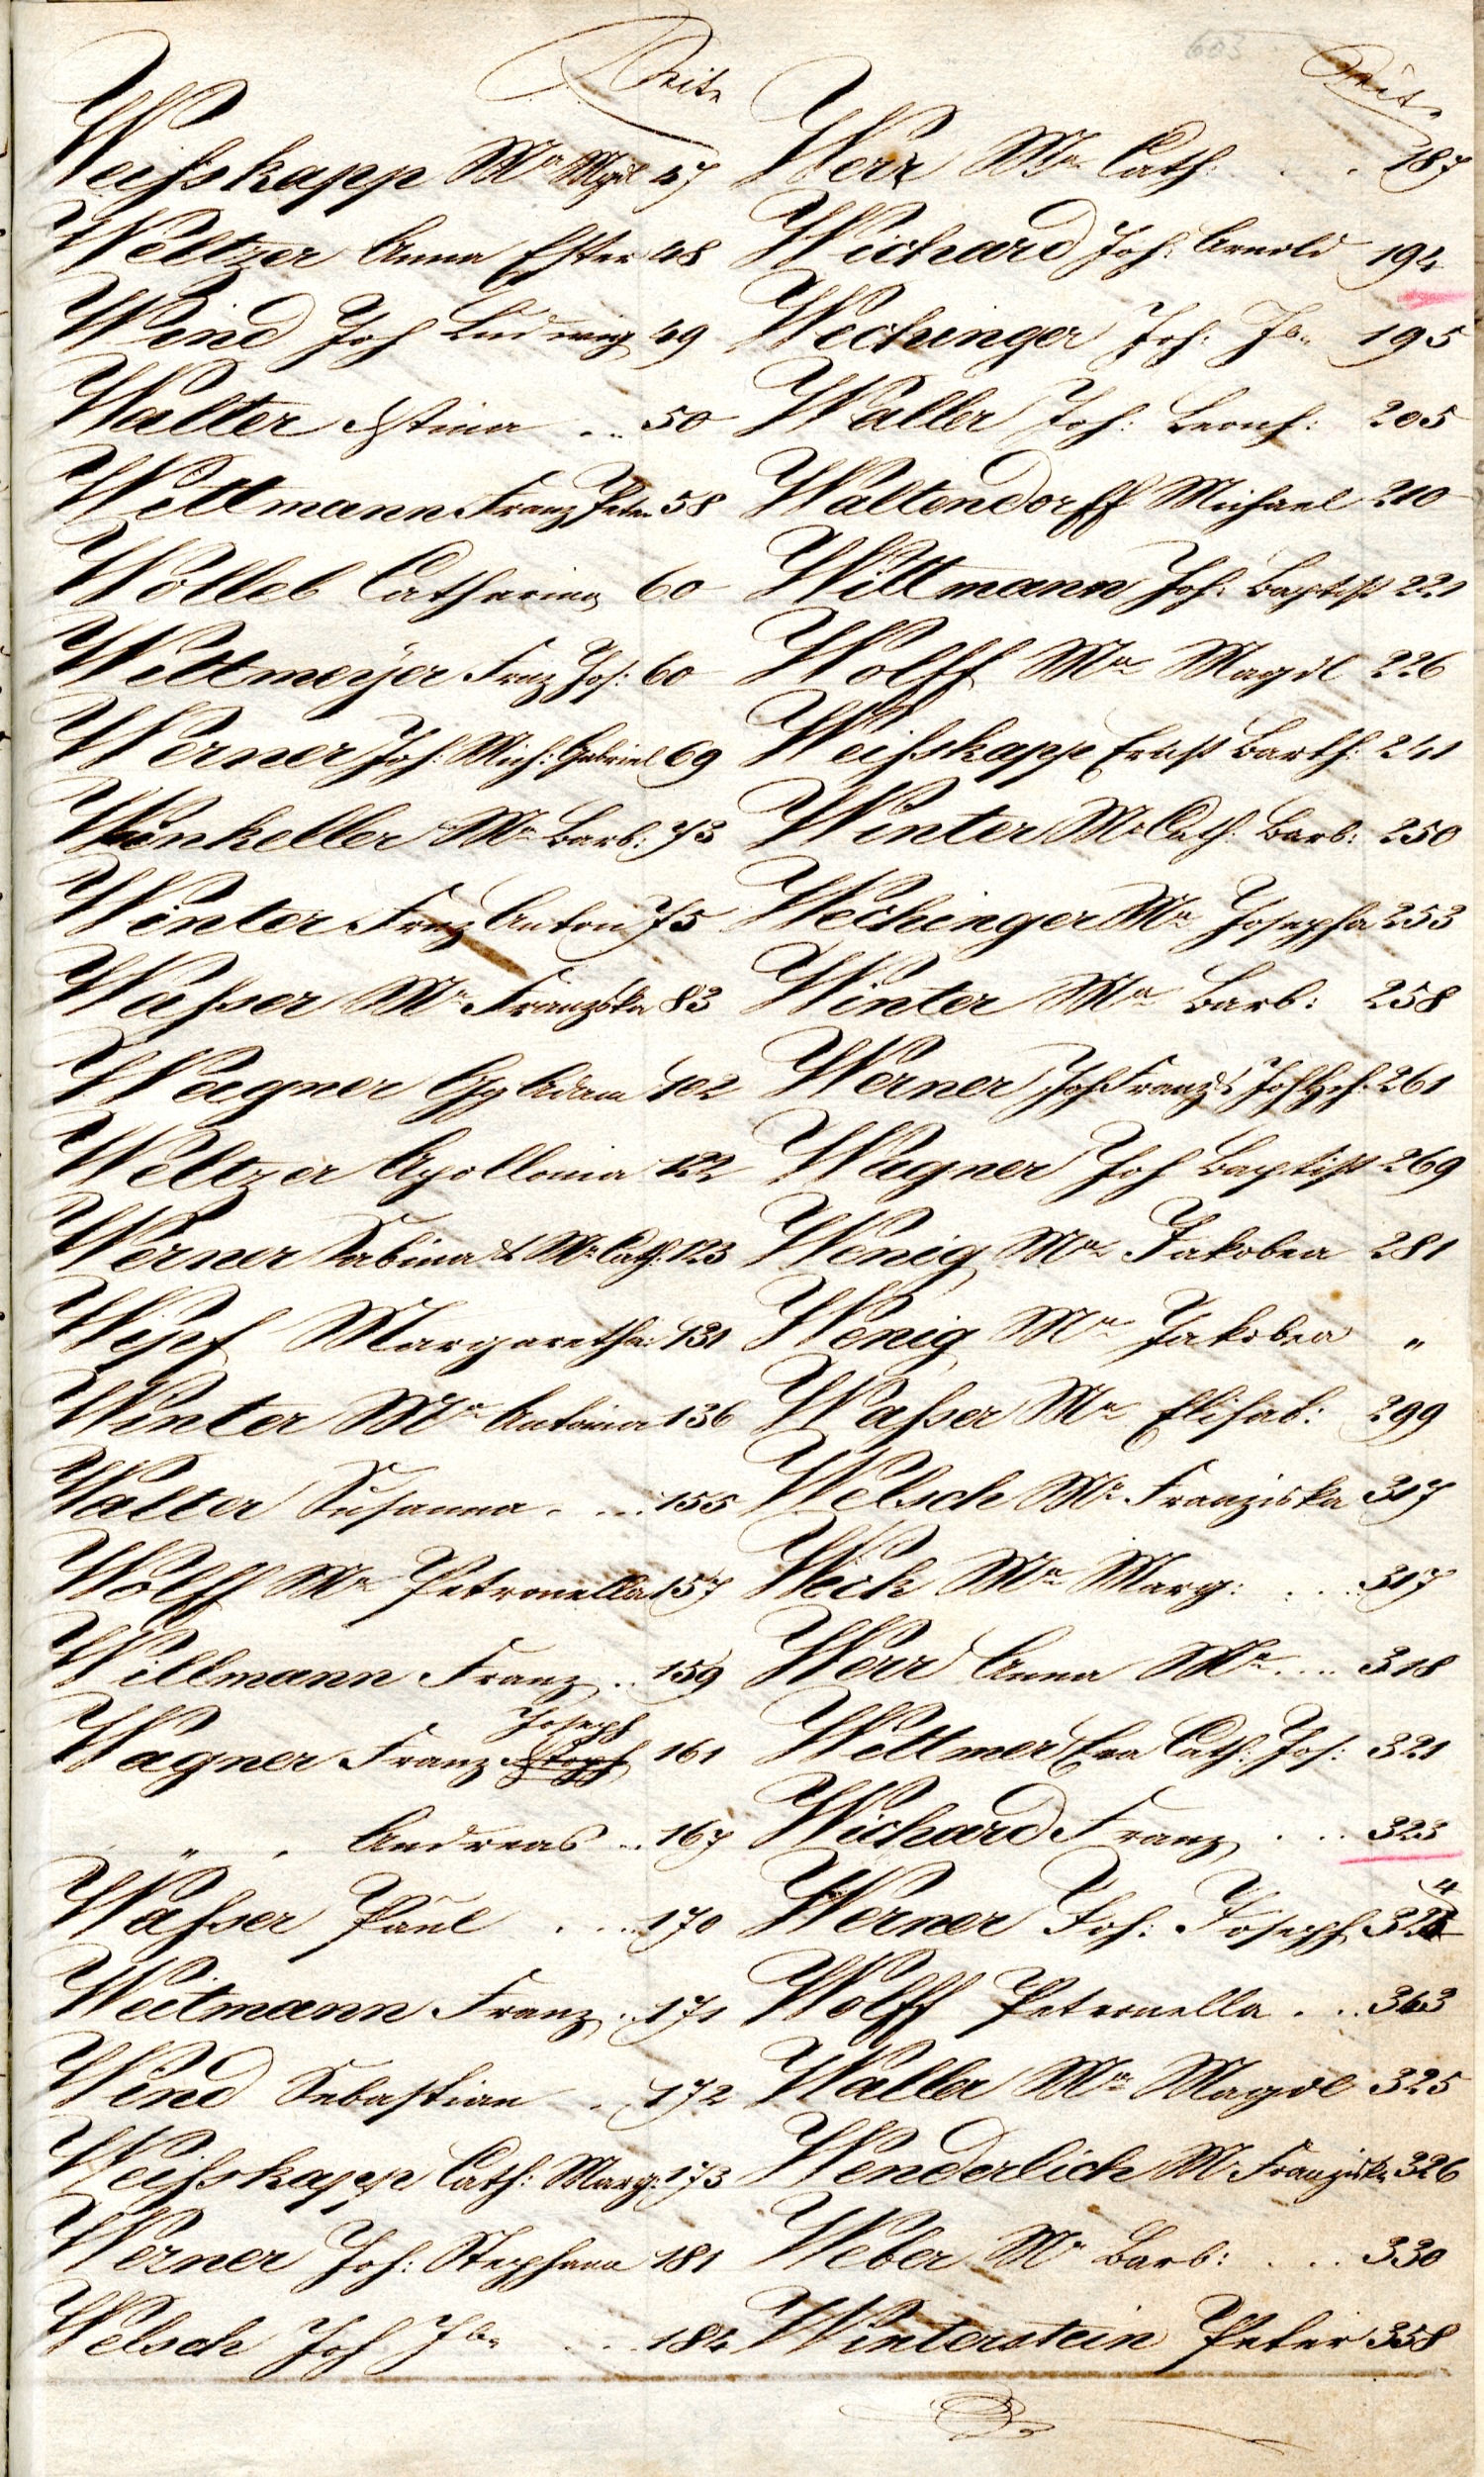 603
Seite
Weißkapp Ma Magd 47
Weltzer Anna Ester 48
Wind Joh Ludwig 49
Walter Xstina .. 50
Wittmann Franz Peter 58
Wolleb Catharina 60
Wittmeyer Franz Jos: 60
Werner Joh: Mich: Gabriel 69
Winkeller Ma Barb: 73
Winter Franz Anton 75
Waßer Ma Franziska 83
Wagner Gg Adam 102
Weltzer Apollonia 122
Werner Sabina & Ma Cath: 123
Wipf Margaretha 131
Winter Ma Antonia 136
Walter Susanna . ... 155
Wolff Ma Petronella 157
Willmann Franz .. 159
Joseph
Wagner Franz 161
" . Andreas .. 167
Waßer Paul . ... 170
Weitmann Franz .. 171
Wind Sebastian . 172
Weißkapp Cath: Marg: 173
Werner Joh: Stephann 181
Welsch Joh Jb. . .. 184
Seite
Werr Ma Cath: . . . 187
Wichard Joh: Arnold 194
Wechinger Joh: Jb. 195
Waller Joh: Leonh: 205
Waltendorff Michael 210
Wittmann Joh: Baptist 221
Wolff Ma Magdl 226
Weißkapp Ernst Barth: 241
Winter Ma Cath: Barb: 250
Wechinger Ma Josepha 253
Winter Ma Barb: 258
Werner Joh Franz & Joh Hch: 261
Wagner Joh Baptist 269
Wenig Ma Jakobea 281
Wenig Ma Jakobea "
Waßer Ma Elisab: 299
Welsch Ma Franziska 317
Weck Ma Marg: . ... 317
Werr Anna Ma ... 318
Wittmer Eva Cath: Jos: 321
Wichard Franz . .. 323
Werner Joh: Joseph 324
Wolff Petronella . .. 363
Waller Ma Magdl 325
Wenderlich Ma Franziska 326
Weber Ma Barb: . .. 330
Winterstein Peter 358